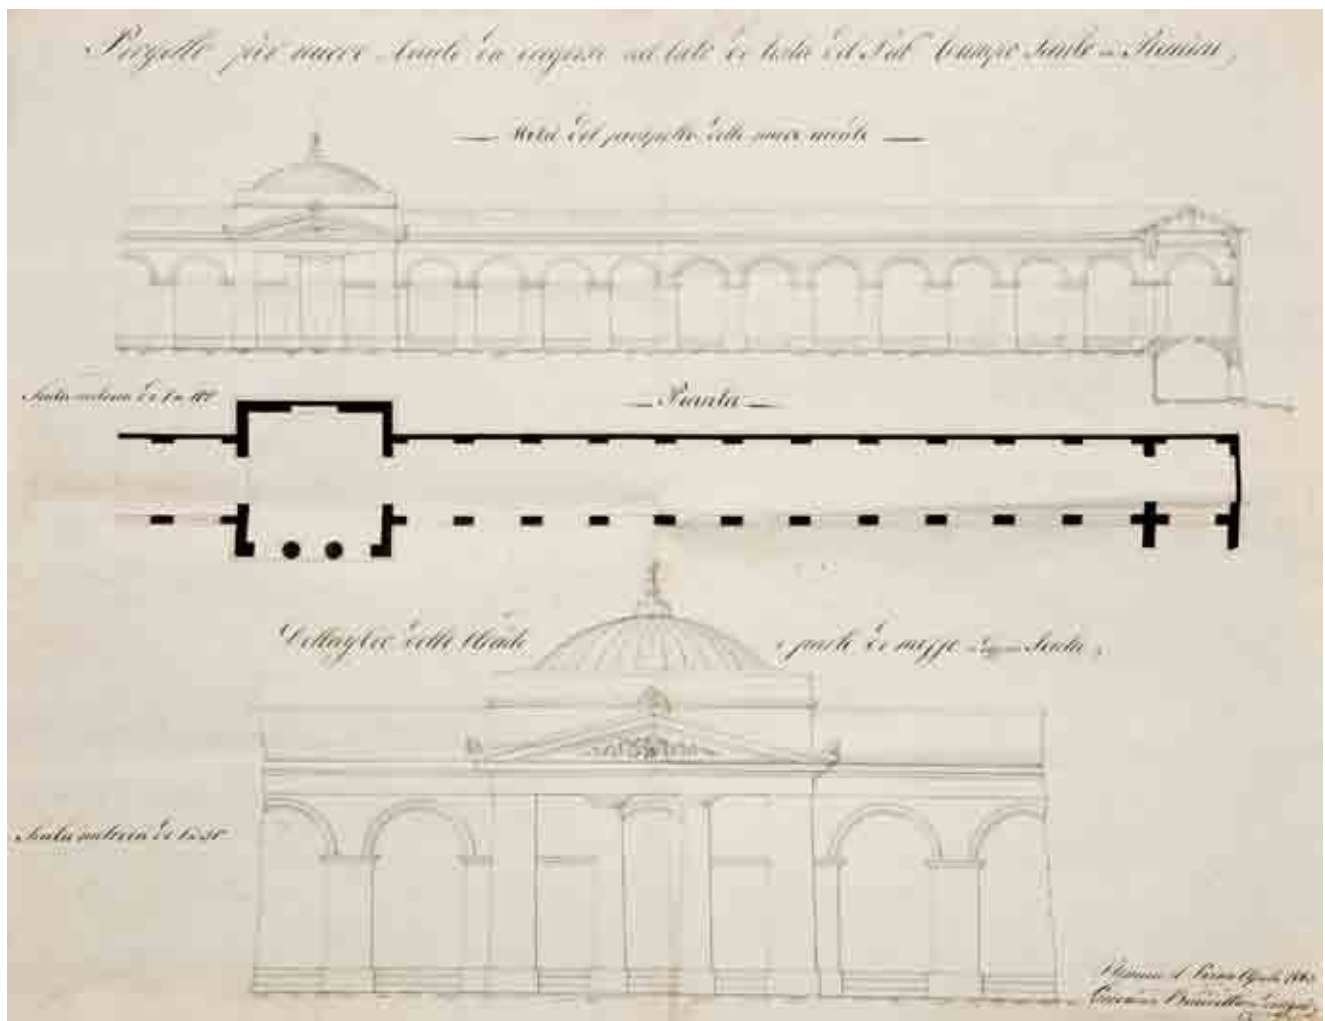 Progetto per nuove Arcate da erigersi nel lato di testa del Pub Campo Santo in Rimini
Metà del prospetto delle nuove arcate
Scala metrica di 1 a 100
Pianta
Dettaglio delle Arcate e parte di mezzo Scala
Scala metrica di 1 a 50
Rimini
Giovanni